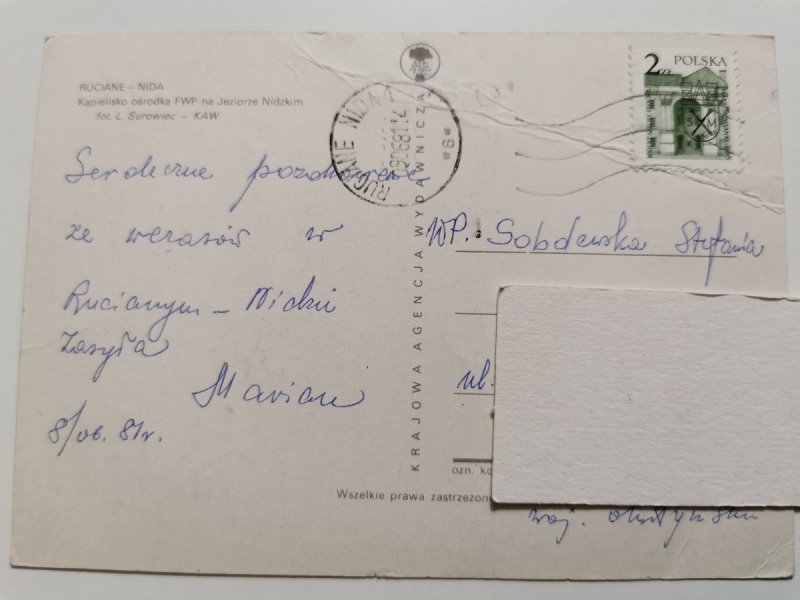 RUCIANE – NIDA
Kąpielisko ośrodka FWP na Jeziorze Nidzkim
fot. L. Surowiec – KAW
Serdeczne pozdrowienia
ze wczasów w
Rucianym – Nidzie
Zasyła
Marian
8/06. 81r.
KRAJOWA AGENCJA WYDAWNICZA
RUCIANE NIDA 1
*6**
2 ZŁ
POLSKA
WP. Sobolewska Stefania
ul.
ozn.
Wszelkie prawa zastrzeżone
woj. olsztyńskie